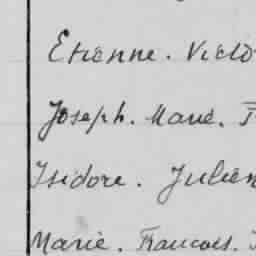 Etienne. Victo
Joseph. Marie.
Isidore. Julien
Marie. Francois.